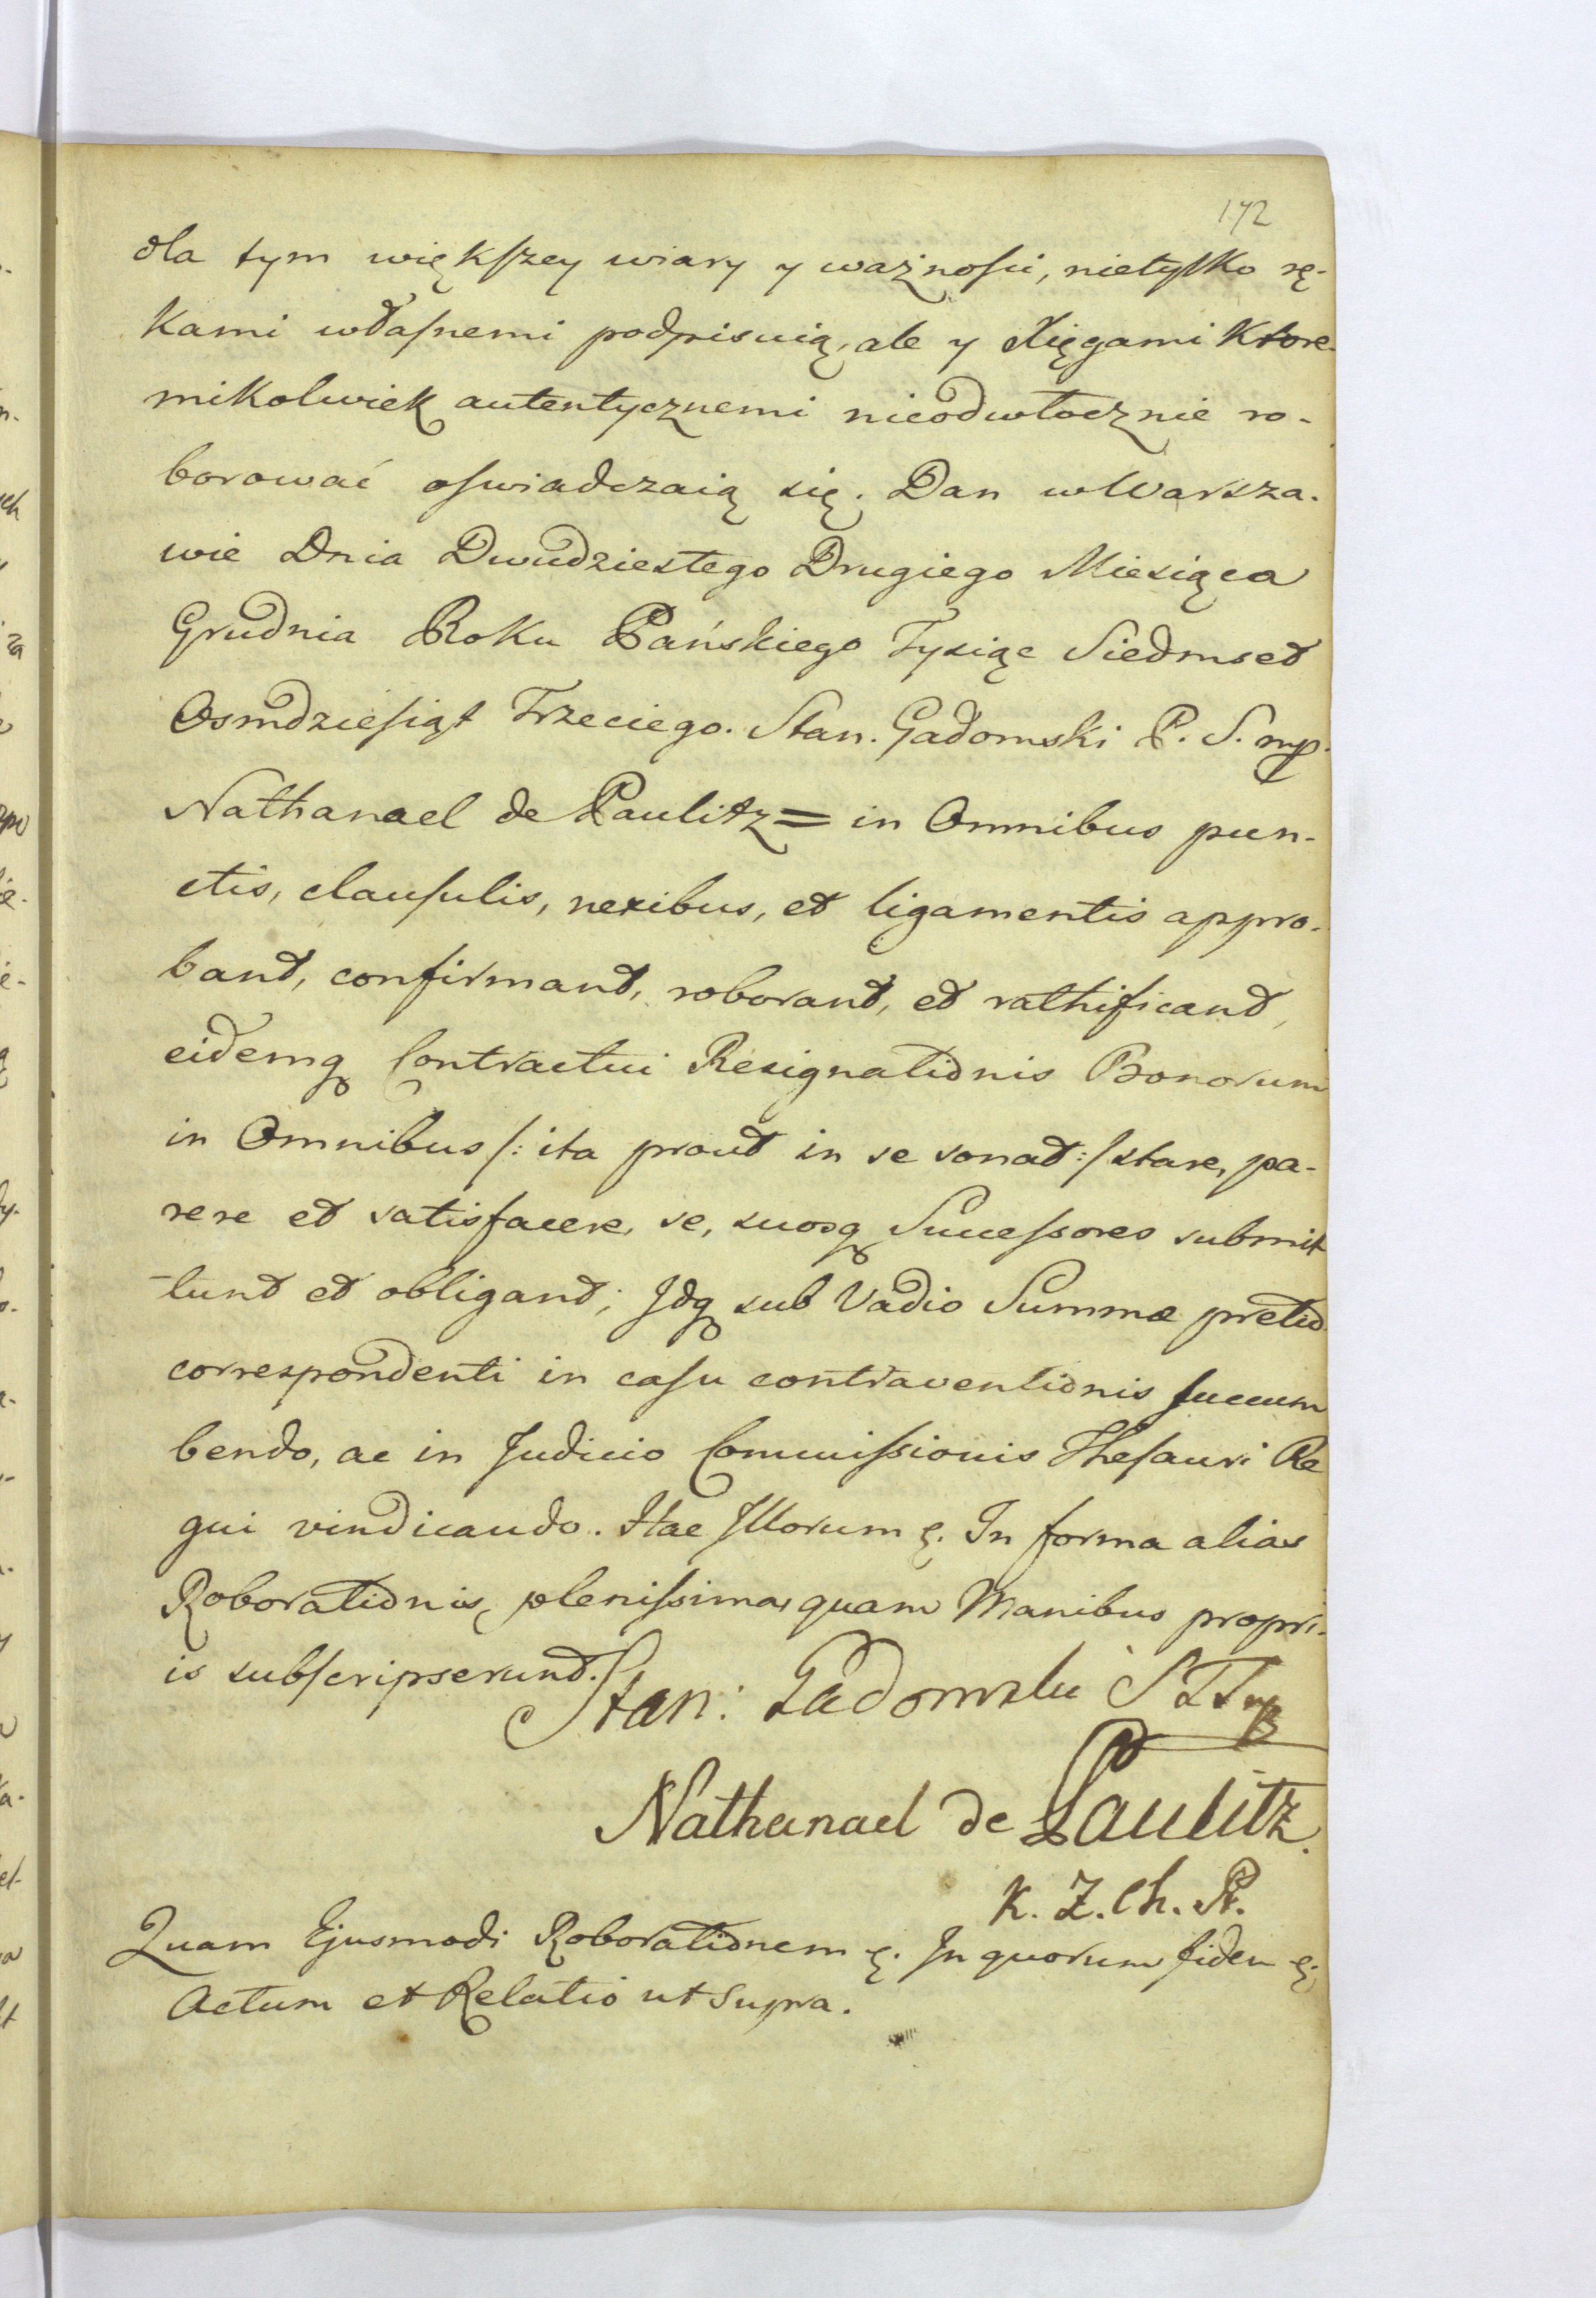 172
dla tym większey wiary y ważnosci, nietylko rę-
kami własnemi podpisuią, ale y Xięgami ktore-
mikolwiek autentycznemi nieodwłocznie ro-
borować oswiadczaią się. Dan w Warsza-
wie Dnia Dwudziestego Drugiego Miesiąca
Grudnia Roku Pańskiego Tysiąc Siedmset
Osmdziesiąt Trzeciego. Stan. Gadomski P. S. mp.
Nathanael de Paulitz = in Omnibus pun-
ctis, clausulis, nexibus, et ligamentis appro-
bant, confirmant, roborant, et rathificant,
eidemq Contractui Resignationis Bonorum
in Omnibus /: ita prout in se sonat :/ stare, pa-
rere et satisfacere, se, suosq Successores submit
-tunt et obligant; Idq sub Vadio Summæ pretio
correspondenti in casu contraventionis succum
bendo, ac in Judicio Commissionis Thesauri Re
gni vindicando. Hac Illorum &. In forma alias
Roborationis plenissima, quam Manibus propri-
is subscripserunt.
Stan: Gadomski mp
Nathanael de Paulitz.
K. Z. Ch. P.
Quam Ejusmodi Roborationem &. In quorum fidem &.
Actum et Relatio ut Supra.